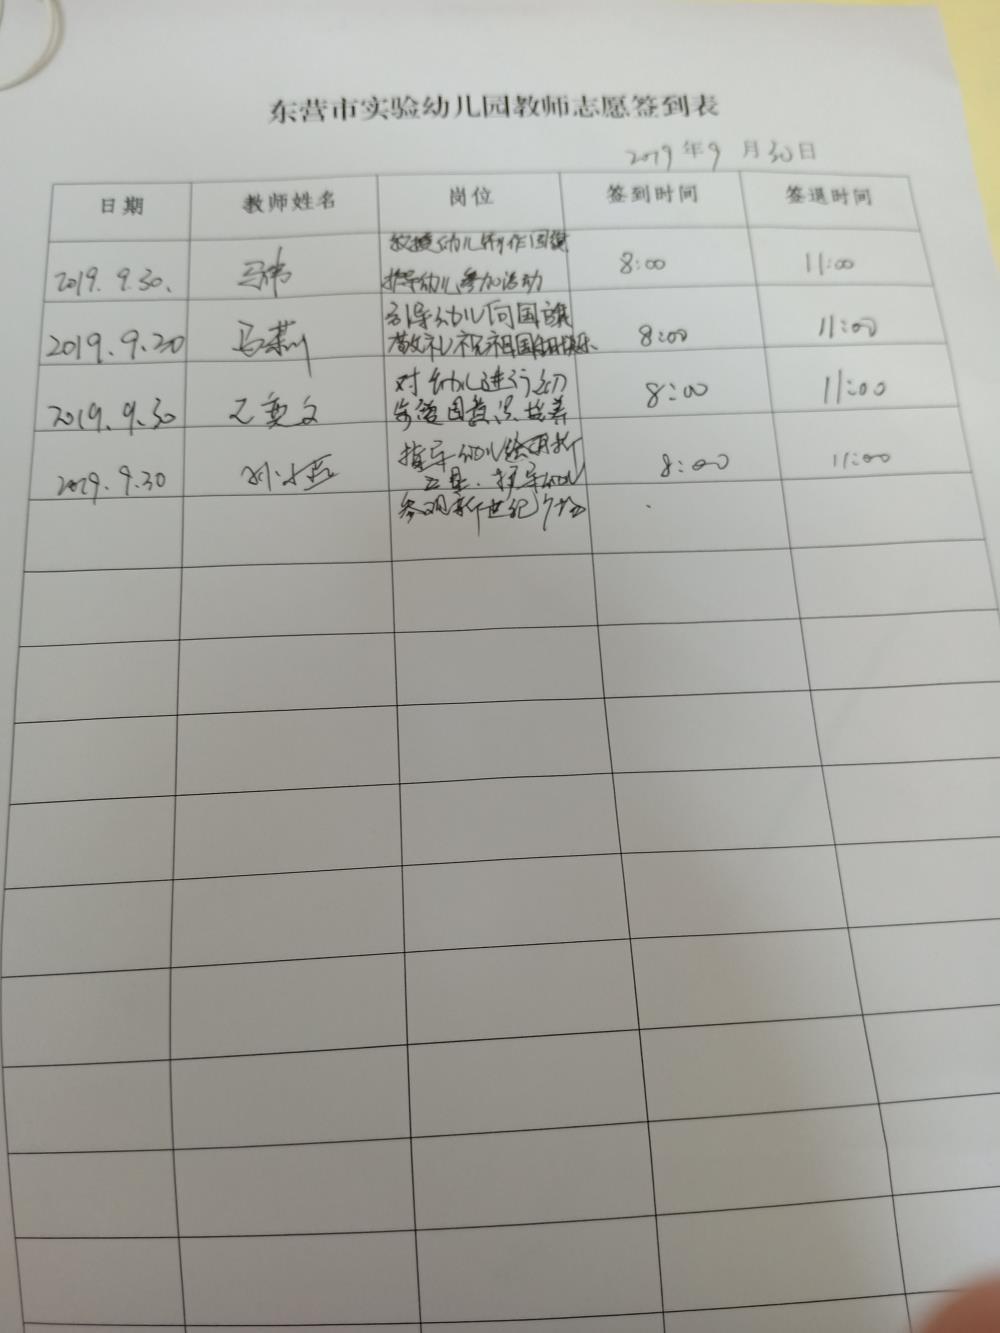 东营市实验幼儿园教师志愿签到表
2019年9月30日
日期 教师姓名 岗位 签到时间 签退时间
2019.9.30. 马伟 教授幼儿制作国旗 8:00 11:00
指导幼儿参加活动
2019.9.30 马莉 引导幼儿向国旗 8:00 11:00
敬礼祝祖国生日快乐
2019.9.30 文 对幼儿进行初 8:00 11:00
步爱国意识培养
2019.9.30 刘小燕 指导幼儿绘画折 8:00 11:00
五星.指导幼儿
参观新世纪广场